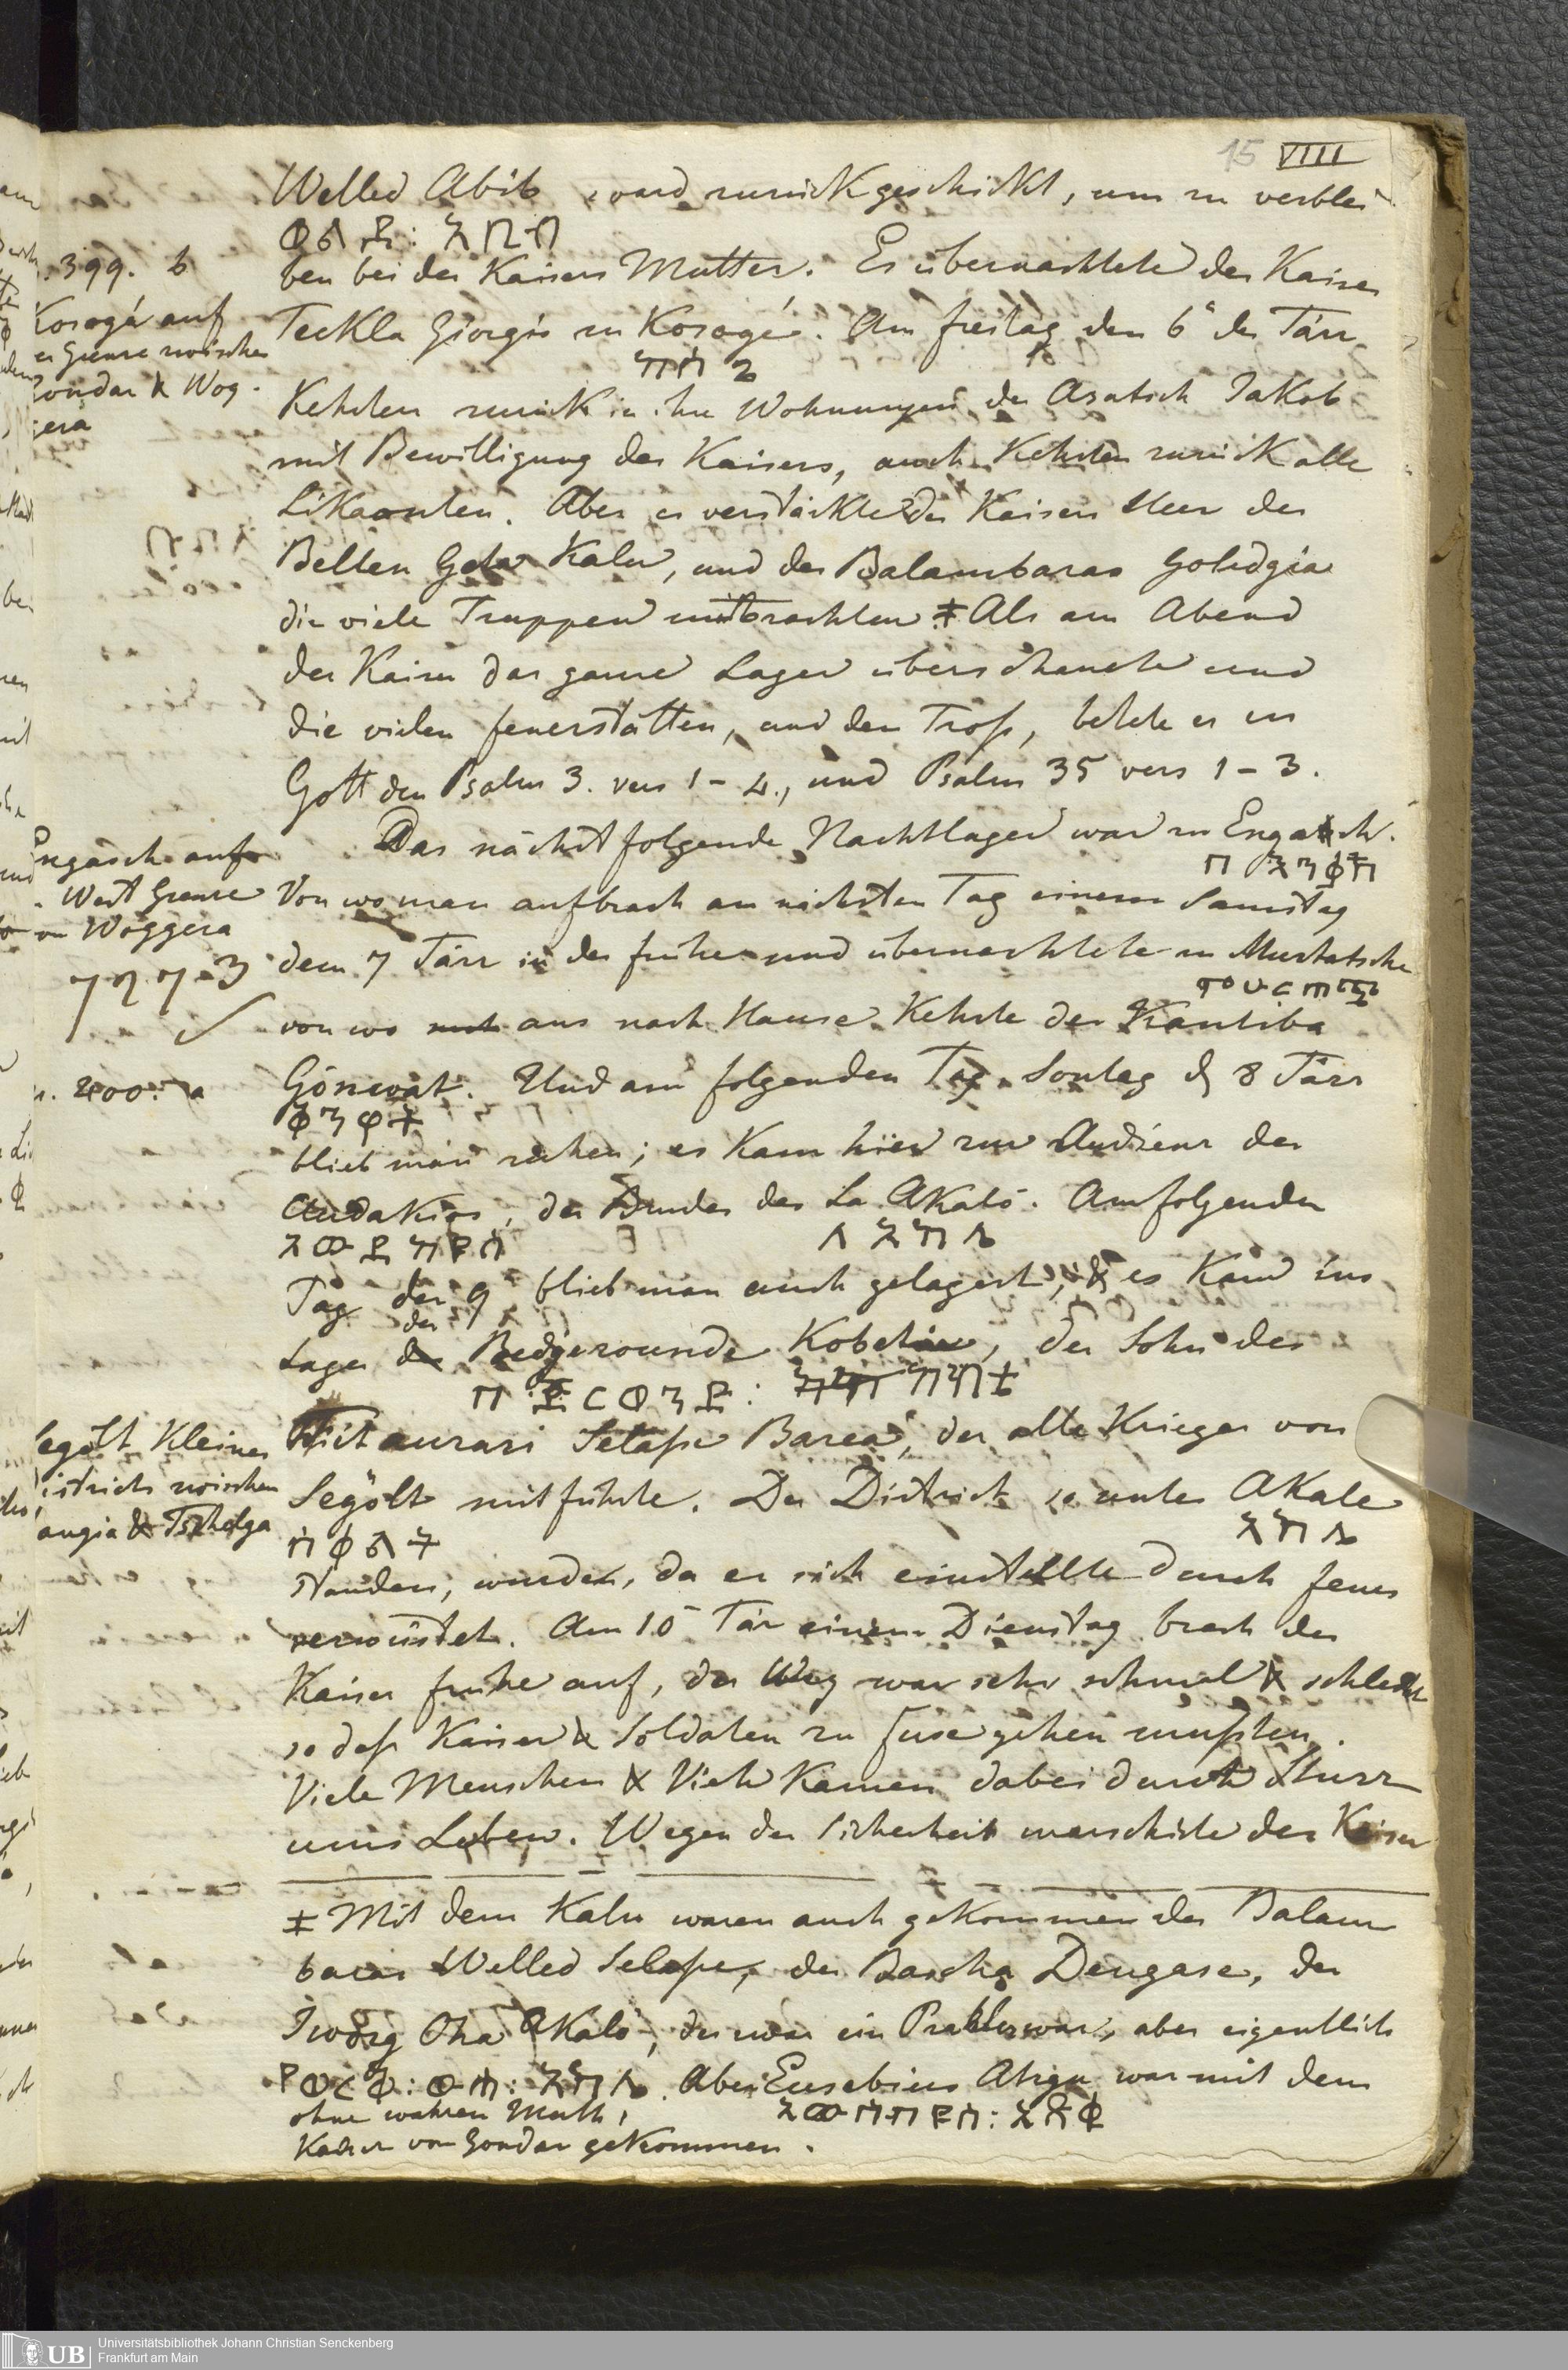 15 VIII
Welled Abib ward zurückgeschickt, um zu verblei
ወልደ: አቢብ
ben bei des Kaisers Mutter. Es übernachtete der Kaiser
399. b
Teckla Giorgis zu Kosogé. Am freitag den 6 des Tärr
Kosogé auf
er Grenze zwischen
Gondar & Wog-
gera
Kehrten zurück in ihre Wohnungen der Asatsch Jakob
mit Bewilligung des Kaisers, auch Kehrten zurück alle
Likaonten. Aber es verstärkte des Kaisers Heer der
Belten Geta Kalu, und der Balambaras Goledgia
die viele Truppen mitbrachten ‡ Als am Abend
der Kaiser das ganze Lager überschaute und
die vielen feuerstätten, und den Troß, betete er zu
Gott den Psalm 3. vers 1-4., und Psalm 35 vers 1-3.
Das nächstfolgende Nachtlager war zu Engasch.
Engasch auf
West Grenze
on Woggera
Von wo man aufbrach am nächsten Tag einem Samstag
dem 7 Tärr in der frühe und übernachtete zu
von wo aus nach Hause Kehrte der Kantiba
400. a
Gönwat. Und am folgenden Tag Sontag d 8 Tärr
blieb man ruhen; es Kam hier zur Audienz der
Audakios, der Bruder des La Akalo. Am folgenden
ለ አካለ
Tag der 9 blieb man auch gelagert, & es Kam ins
der
Lager Bedgerounde, der Sohn des
በጀርወንድ:
Fitaurari Selaße Barea, der alte Krieger von
Segölt Kleiner
istrict zwischen
angia & Tschelga
Segölt mitführte. Der District so unter Akale
አካለ
standen, wurden, da er sich einstellte durch feuer
verwüstet. Am 10 Tär einem Dienstag brach der
Kaiser frühe auf, der Weg war sehr schmal & schlecht
so daß Kaiser & Soldaten zu Fuse gehen mußten.
Viele Menschen & Vieh Kamen dabei durch Sturz
ums Leben. Wegen der Sicherheit marschirte der Kaiser
‡ Mit dem Kalu waren auch gekommen der Balam
baras Welled Selaße, der Bascha Dengase, der
Akalo, der zwar ein Prahler war, aber eigentlich
Aber Eusebius war mit dem
ohne wahren Muth,
Kaiser von Gondar gekommen.
UB Universitätsbibliothek Johann Christian Senckenberg
Frankfurt am Main